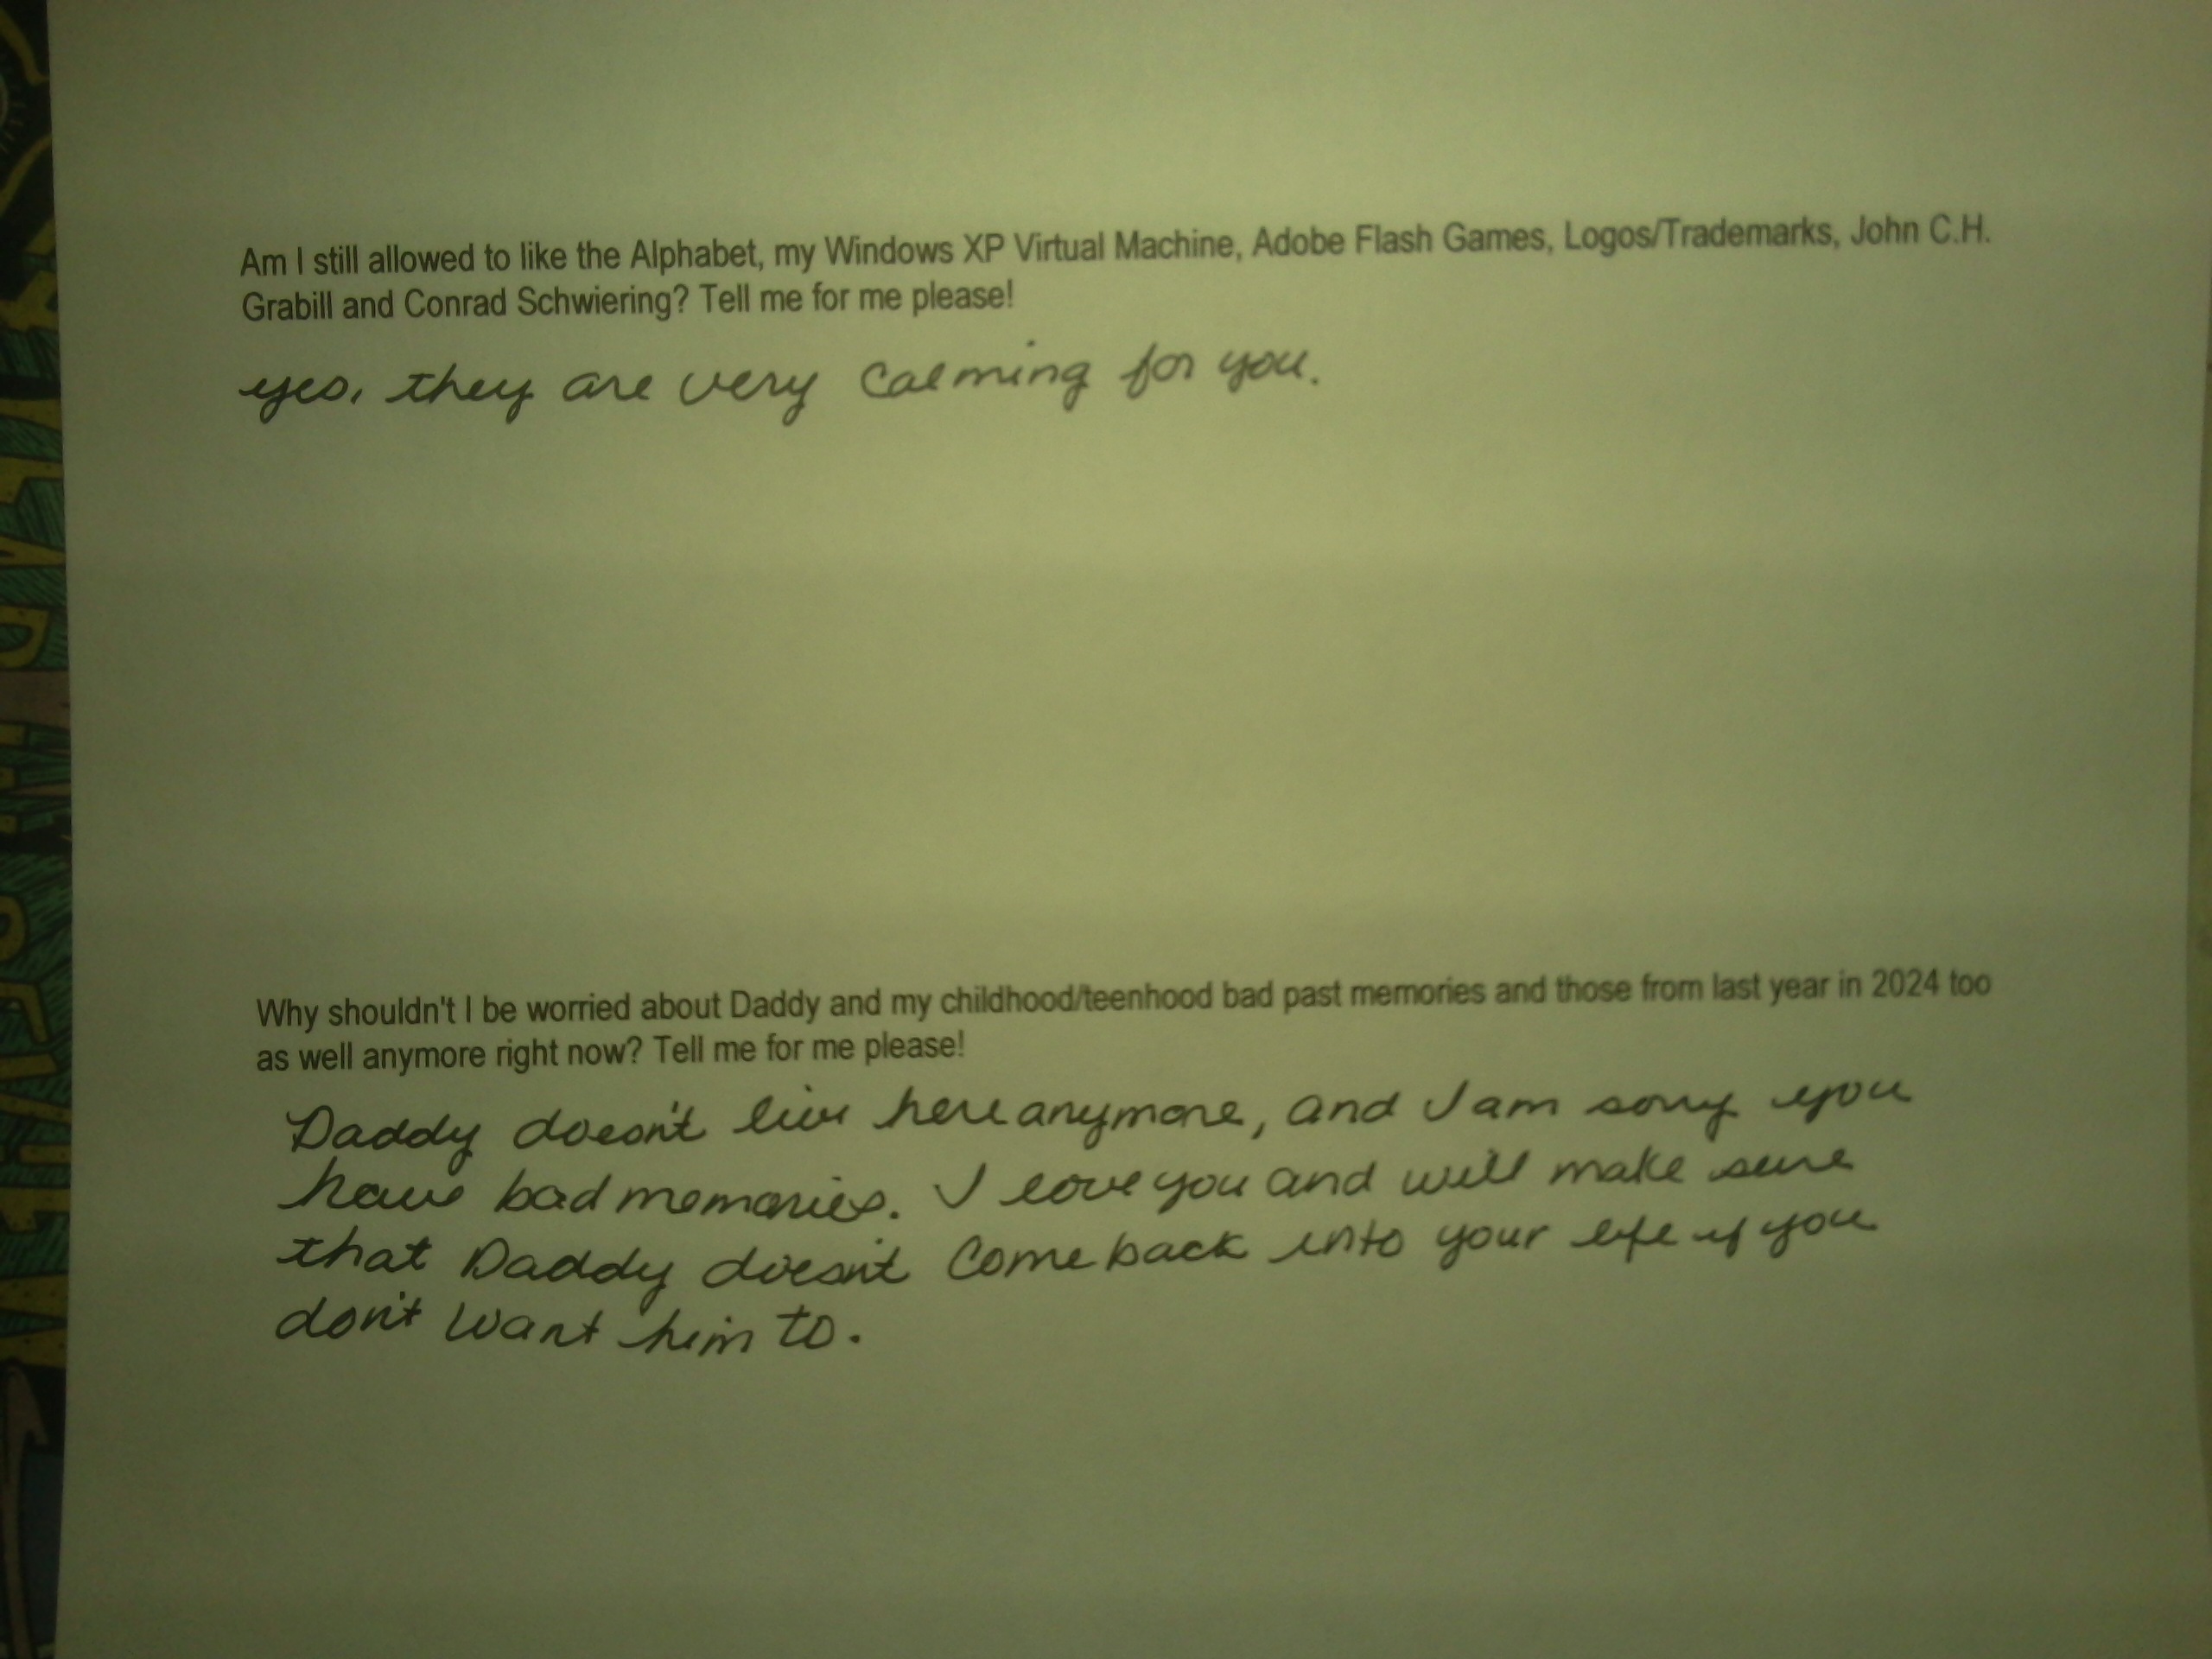 Am I still allowed to like the Alphabet, my Windows XP Virtual Machine, Adobe Flash Games, Logos/Trademarks, John C.H.
Grabill and Conrad Schwiering? Tell me for me please!
yes, they are very calming for you.
Why shouldn't I be worried about Daddy and my childhood/teenhood bad past memories and those from last year in 2024 too
as well anymore right now? Tell me for me please!
Daddy doesn't live here anymore, and I am sorry you
have bad memories. I love you and will make sure
that Daddy doesn't come back into your life if you
don't want him to.